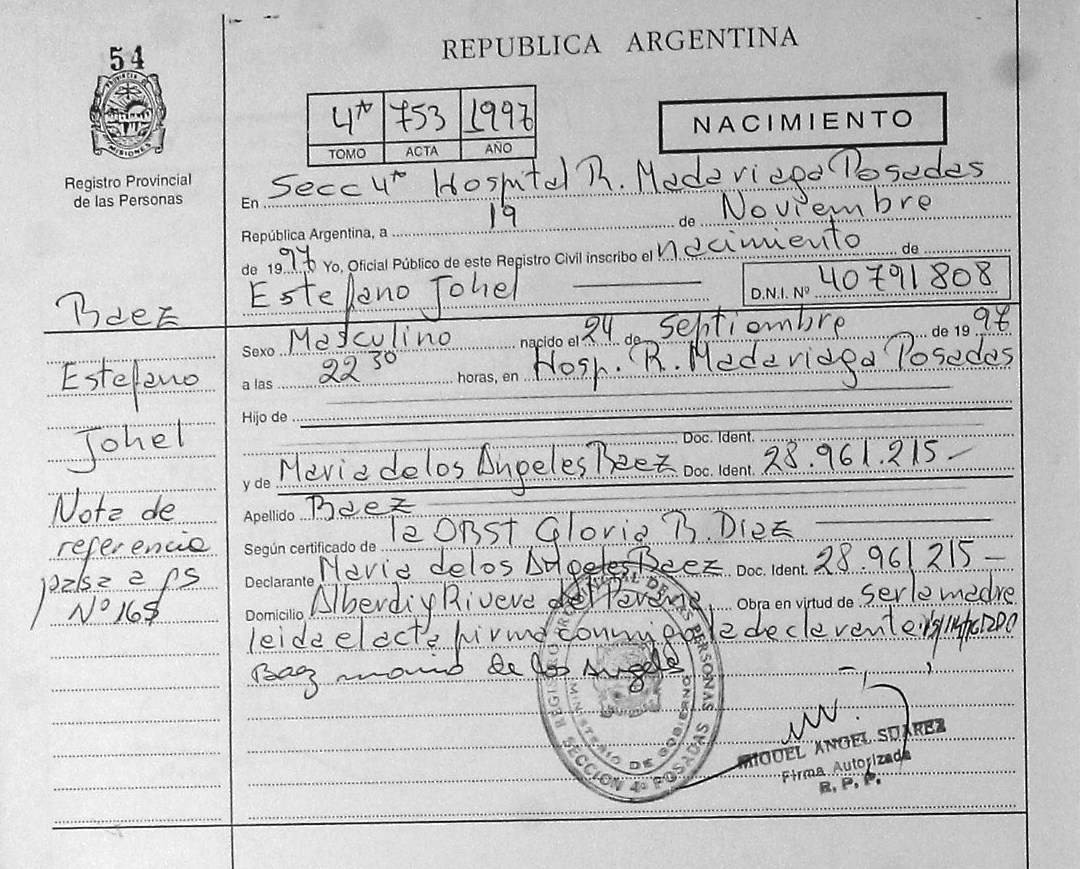 54
PROVINCIA DE
MISIONES
Registro Provincial
de las Personas
REPUBLICA ARGENTINA
4ta 753 1997
TOMO ACTA AÑO
NACIMIENTO
En Secc 4ta Hospital R. Madariaga Posadas
República Argentina, a 19 de Noviembre
de 1997 Yo, Oficial Público de este Registro Civil inscribo el nacimiento de
Estefano Johel
D.N.I. Nº 40791808
Sexo Masculino nacido el 24 de Septiembre de 1997
a las 22 30 horas, en Hosp. R. Madariaga Posadas
Hijo de
Doc. Ident.
y de Maria de los Angeles Baez Doc. Ident. 28.961.215-
Apellido Baez
Según certificado de la OBST Gloria B. Diaz
Declarante Maria de los Angeles Baez Doc. Ident. 28.961215-
Domicilio Alberdi y Rivera del Obra en virtud de ser la madre
leida el acta firma conmigo la declarante
Baez maria de los Angeles
Baez
Estefano
Johel
Nota de
referencia
pasa a fs
Nº
REGISTRO PROVINCIAL DE LAS PERSONAS
MINISTERIO DE GOBIERNO
SECCION 4ª POSADAS
MIGUEL ANGEL SUAREZ
Firma Autorizada
R. P. P.